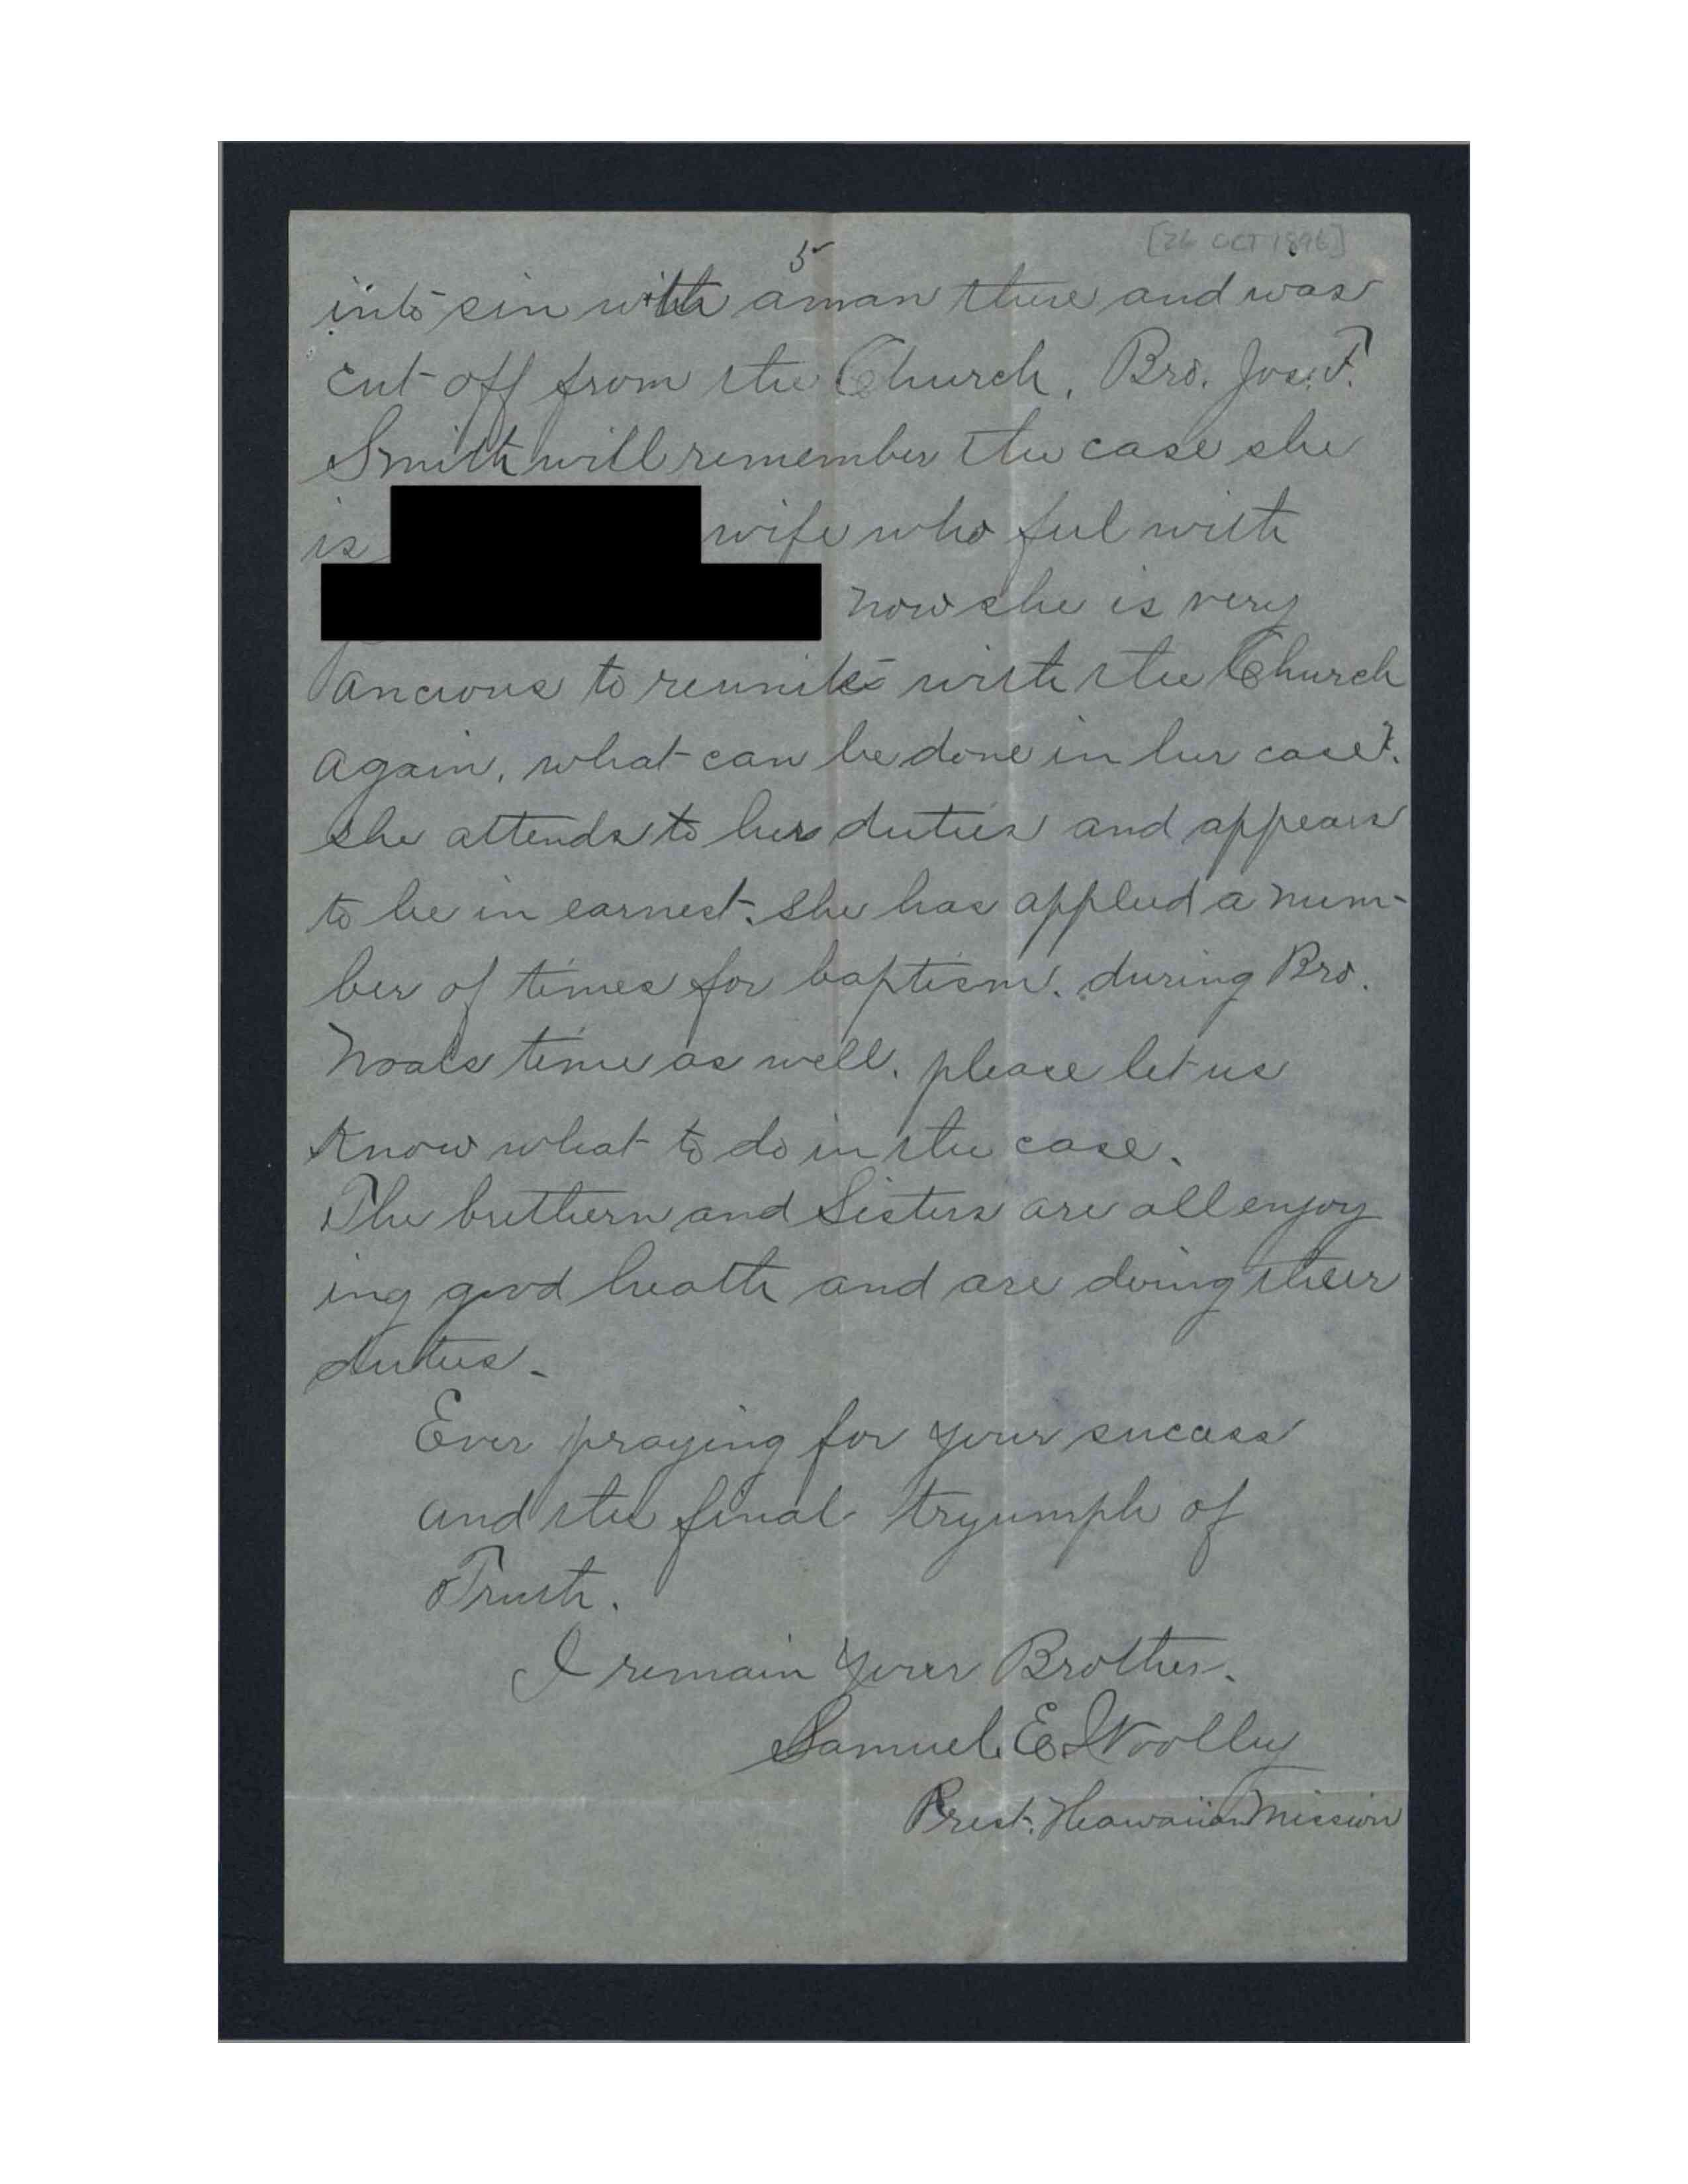 5
[26 OCT 1896]
into sin with a man there and was
cut off from the Church. Bro. Jos. F.
Smith will remember the case she
is wife who fel with
now she is very
ancious to reunite with the Church
again, what can be done in her case?
she attends to her duties and appears
to be in earnest. she has applied a num-
ber of times for baptism. during Bro.
Noals time as well. please let us
know what to do in the case.
The brethern and Sisters are all enjoy
ing good heath and are doing their
duties.
Ever praying for your sucess
and the final tryumph of
Truth.
I remain your Brother.
Samuel E. Woolley
Prest. Hawaiian Mission